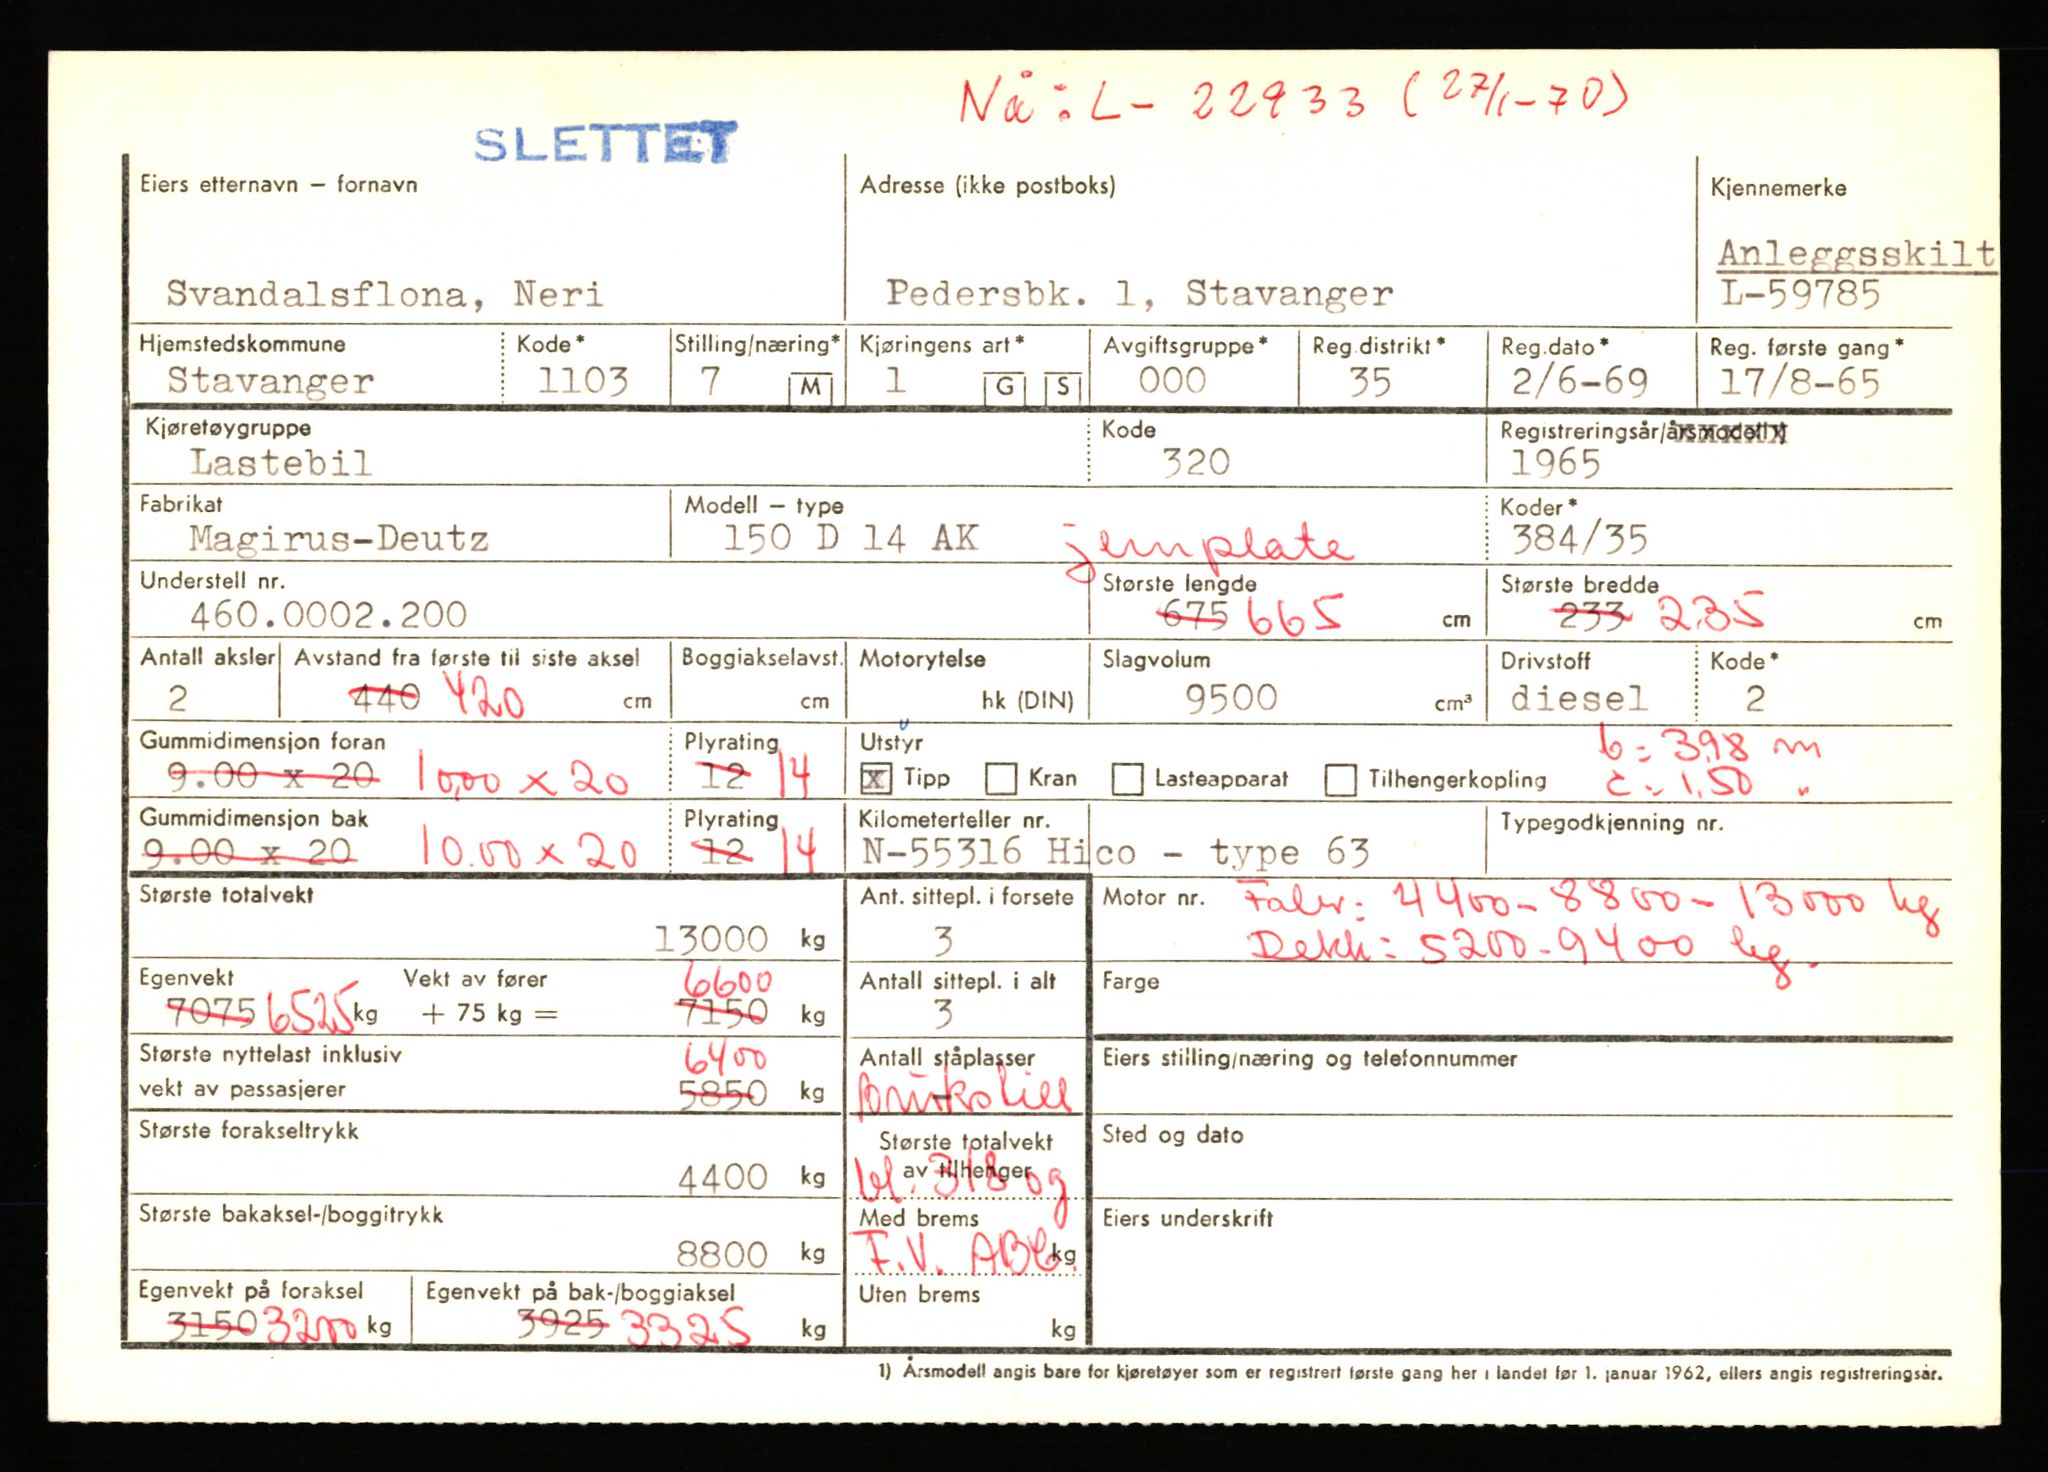 Nå: L - 22933 (27/1-70)
SLETTET
Eiers etternavn – fornavn
Adresse (ikke postboks)
Kjennemerke
Anleggsskilt
Svandalsflona, Neri
Pedersbk. 1, Stavanger
L-59785
Hjemstedskommune
Kode*
Stilling/næring*
Kjøringens art*
Avgiftsgruppe*
Reg.distrikt*
Reg.dato*
Reg. første gang*
Stavanger
1103
7
M
1
G
S
000
35
2/6-69
17/8-65
Kjøretøygruppe
Kode
Registreringsår/årsmodell 1)
Lastebil
320
1965
Fabrikat
Modell – type
Koder*
Magirus-Deutz
150 D 14 AK
jernplate
384/35
Understell nr.
Største lengde
Største bredde
460.0002.200
675 665 cm
233 2.35 cm
Antall aksler
Avstand fra første til siste aksel
Boggiakselavst.
Motorytelse
Slagvolum
Drivstoff
Kode*
2
440 420 cm
cm
hk (DIN)
9500 cm³
diesel
2
Gummidimensjon foran
Plyrating
Utstyr
b = 3,98 m
9.00 x 20 10,00 x 20
12 14
x Tipp
Kran
Lasteapparat
Tilhengerkopling
c = 1,50 "
Gummidimensjon bak
Plyrating
Kilometerteller nr.
Typegodkjenning nr.
9.00 x 20 10.00 x 20
12 14
N-55316 Hico - type 63
Største totalvekt
Ant. sittepl. i forsete
Motor nr.
4400 - 8800 - 13000 kg
13000 kg
3
Dekk: 5200 - 9400 kg.
Egenvekt
Vekt av fører
6600
Antall sittepl. i alt
Farge
7075 6525 kg
+ 75 kg =
7150 kg
3
Største nyttelast inklusiv
6400
Antall ståplasser
Eiers stilling/næring og telefonnummer
vekt av passasjerer
5850 kg
Største forakseltrykk
Største totalvekt
Sted og dato
4400 kg
av tilhenger
bl. 318 og
Største bakaksel-/boggitrykk
Med brems
Eiers underskrift
8800 kg
F.V. kg
Egenvekt på foraksel
Egenvekt på bak-/boggiaksel
Uten brems
3150 3200 kg
3925 3325 kg
kg
1) Årsmodell angis bare for kjøretøyer som er registrert første gang her i landet før 1. januar 1962, ellers angis registreringsår.